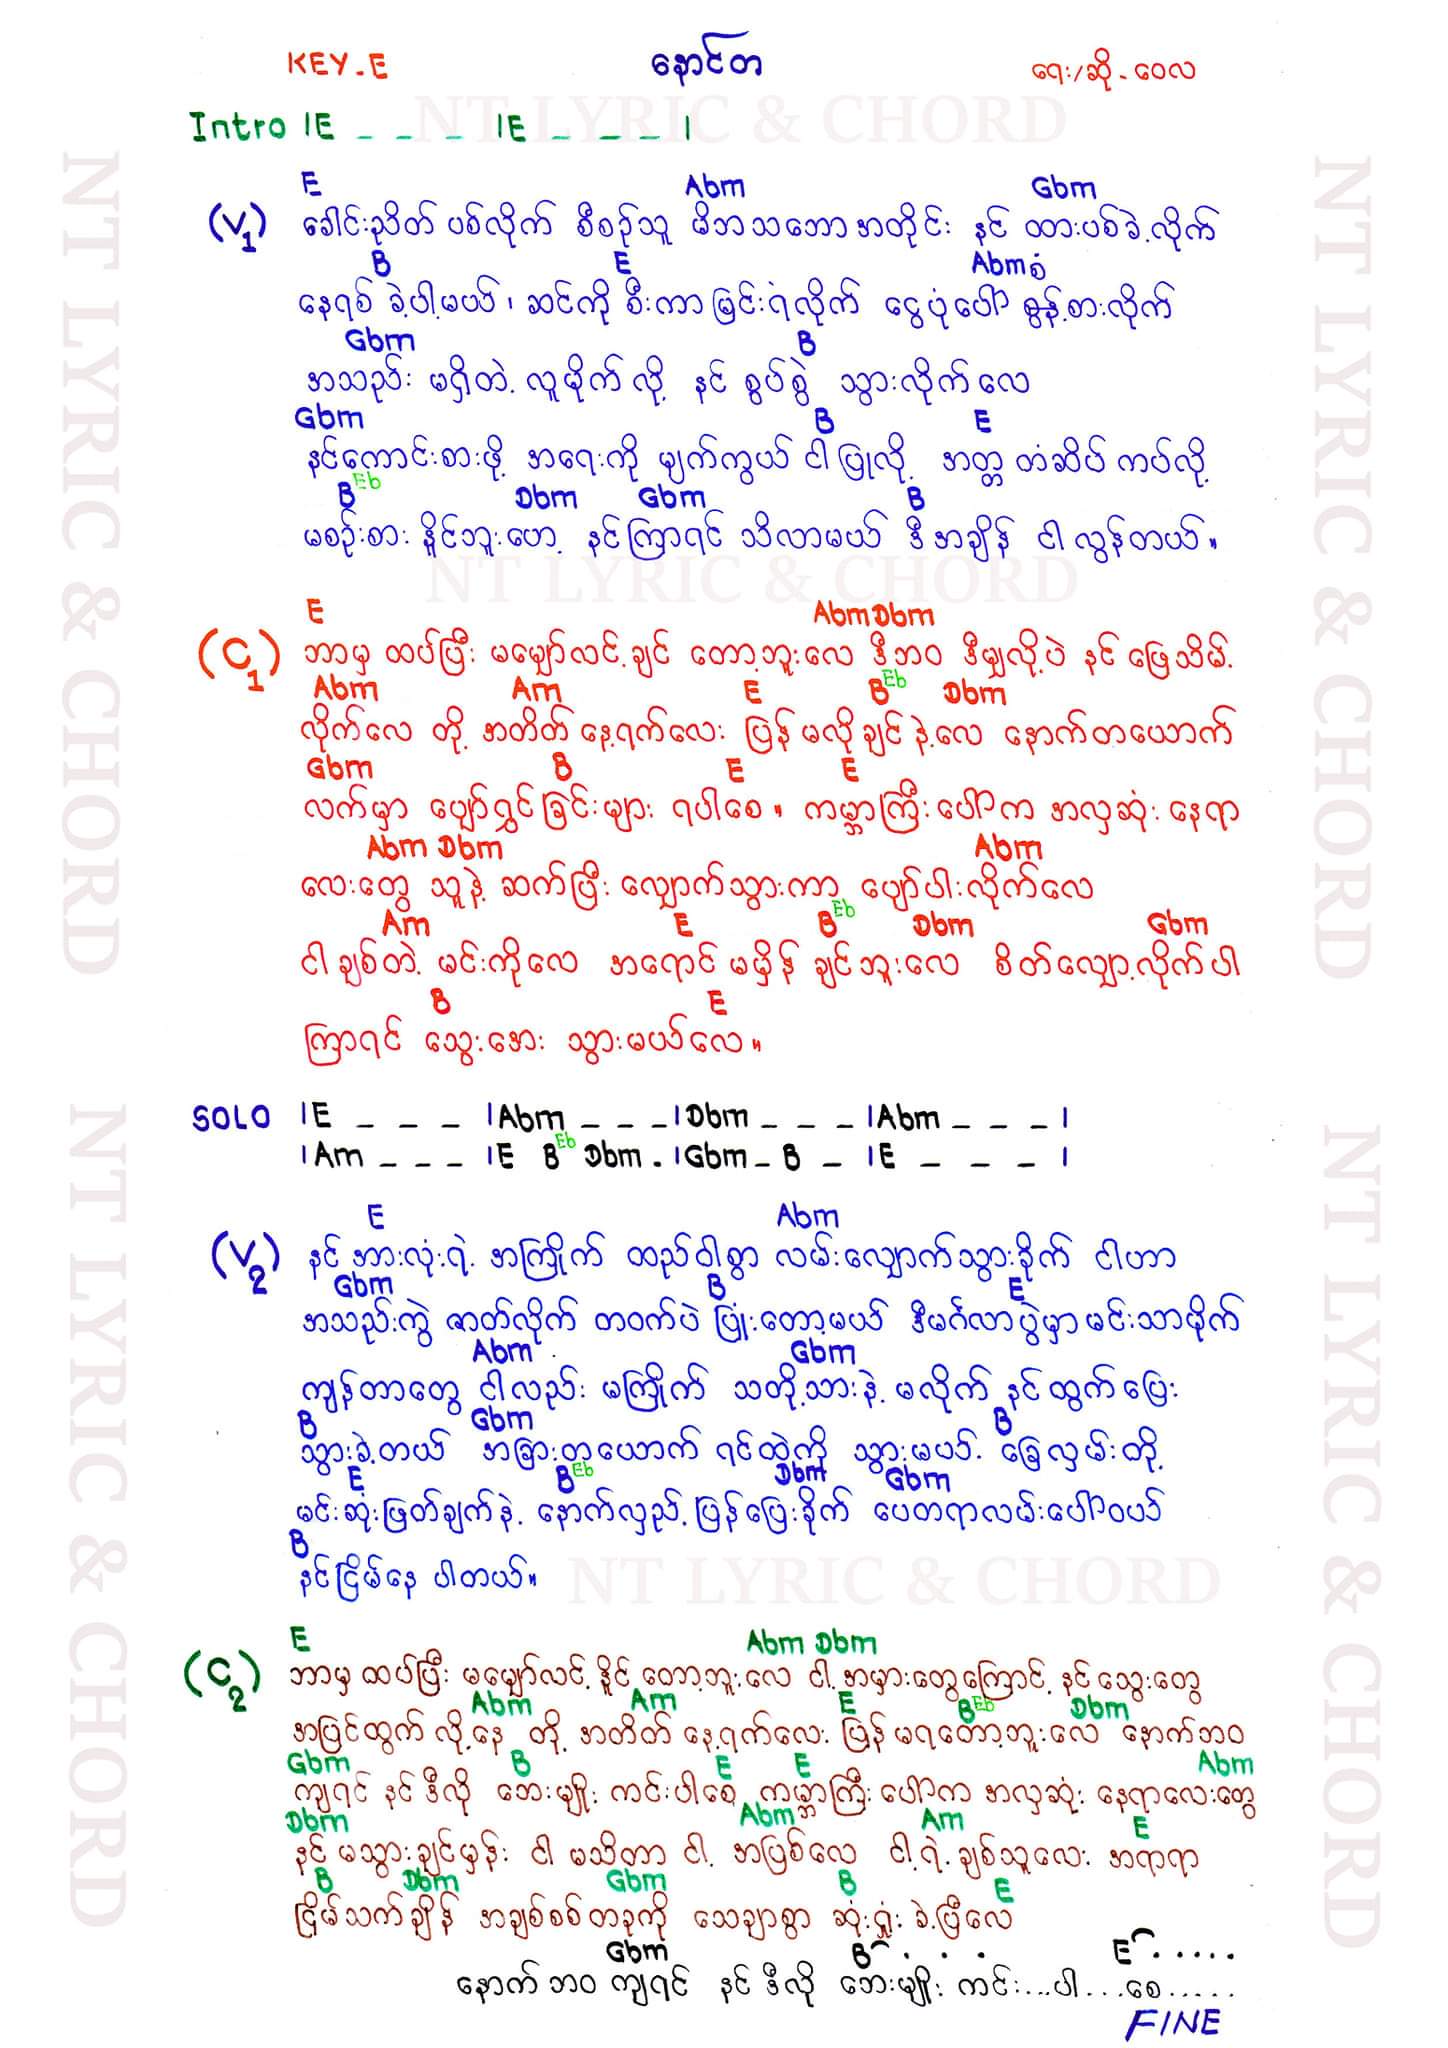 KEY-E နောင်တ ရေး/ဆို - ဝေလ
Intro |E _ _ _ |E _ _ _ |
E Abm Gbm
(V1) ခေါင်းညိတ် ပစ်လိုက် စီစဉ်သူ မိဘသဘောအတိုင်း နင် ထားပစ်ခဲ့လိုက်
B E Abm စံ
နေရစ် ခဲ့ပါ့မယ်၊ ဆင်ကို စီးကာ မြင်းရံလိုက် ငွေပုံပေါ် စွန့်စားလိုက်
Gbm B
အသည်း မရှိတဲ့ လူမိုက်လို့ နင် စွပ်စွဲ သွားလိုက်လေ
Gbm B E
နင်ကောင်းစားဖို့ အရေးကို မျက်ကွယ် ငါပြုလို့ အတ္တ တံဆိပ် ကပ်လို့
B Eb Dbm Gbm B
မစဉ်းစား နိူင်ဘူးဟေ့ နင်ကြာရင် သိလာမယ် ဒီအချိန် ငါ လွန်တယ်။
E Abm Dbm
(C1) ဘာမှ ထပ်ပြီး မမျှော်လင့်ချင် တော့ဘူးလေ ဒီဘဝ ဒီမျှလို့ပဲ နင် ဖြေသိမ့်
Abm Am E B Eb Dbm
လိုက်လေ တို့ အတိတ် နေ့ရက်လေး ပြန် မလိုချင်နဲ့လေ နောက်တယောက်
Gbm B E E
လက်မှာ ပျော်ရွှင်ခြင်းများ ရပါစေ။ ကမ္ဘာကြီးပေါ်က အလှဆုံး နေရာ
Abm Dbm Abm
လေးတွေ သူနဲ့ ဆက်ပြီး လျှောက်သွားကာ ပျော်ပါးလိုက်လေ
Am E B Eb Dbm Gbm
ငါချစ်တဲ့ မင်းကိုလေ အရောင် မမှိန် ချင်ဘူးလေ စိတ်လျှော့လိုက်ပါ
B E
ကြာရင် သွေးအေး သွားမယ်လေ။
SOLO |E _ _ _ |Abm _ _ _ |Dbm _ _ _ |Abm _ _ _ |
|Am _ _ _ |E B Eb Dbm . |Gbm _ B _ |E _ _ _ |
E Abm
(V2) နင် အားလုံးရဲ့ အကြိုက် ထည်ဝါစွာ လမ်းလျှောက်သွားခိုက် ငါဟာ
Gbm B E
အသည်းကွဲ ဇာတ်လိုက် တဝက်ပဲ ပြုံးတော့မယ် ဒီမင်္ဂလာပွဲမှာ မင်းသာမိုက်
Abm Gbm
ကျန်တာတွေ ငါလည်း မကြိုက် သတို့သားနဲ့ မလိုက် နင်ထွက်ပြေး
B Gbm B
သွားခဲ့တယ် အခြားတယောက် ရင်ထဲကို သွားမယ့် ခြေလှမ်းတို့
E B Eb Dbm Gbm
မင်းဆုံးဖြတ်ချက်နဲ့ နောက်လှည့် ပြန်ပြေးခိုက် ပေတရာလမ်းပေါ်ဝယ်
B
နင်ငြိမ်နေ ပါတယ်။
E Abm Dbm
(C2) ဘာမှ ထပ်ပြီး မမျှော်လင့် နိူင် တော့ဘူးလေ ငါ့ အမှားတွေကြောင့် နင် သွေးတွေ
Abm Am E B Eb Dbm
အပြင်ထွက် လို့နေ တို့ အတိတ် နေ့ရက်လေး ပြန် မရတော့ဘူးလေ နောက်ဘဝ
Gbm B E E Abm
ကျရင် နင် ဒီလို ဘေးမျိုး ကင်းပါစေ ကမ္ဘာကြီး ပေါ်က အလှဆုံး နေရာလေးတွေ
Dbm Abm Am E
နင် မသွားချင်မှန်း ငါ မသိတာ ငါ့ အပြစ်လေ ငါ့ရဲ့ ချစ်သူလေး အရာရာ
B Dbm Gbm B E
ငြိမ်သက်ချိန် အချစ်စစ်တခုကို သေချာစွာ ဆုံးရှုံး ခဲ့ပြီလေ
Gbm B . . . E . . . . .
နောက်ဘဝ ကျရင် နင် ဒီလို ဘေးမျိုး ကင်း...ပါ...စေ.....
FINE
NT LYRIC & CHORD
NT LYRIC & CHORD
NT LYRIC & CHORD
NT LYRIC & CHORD
NT LYRIC & CHORD
NT LYRIC & CHORD
NT LYRIC & CHORD